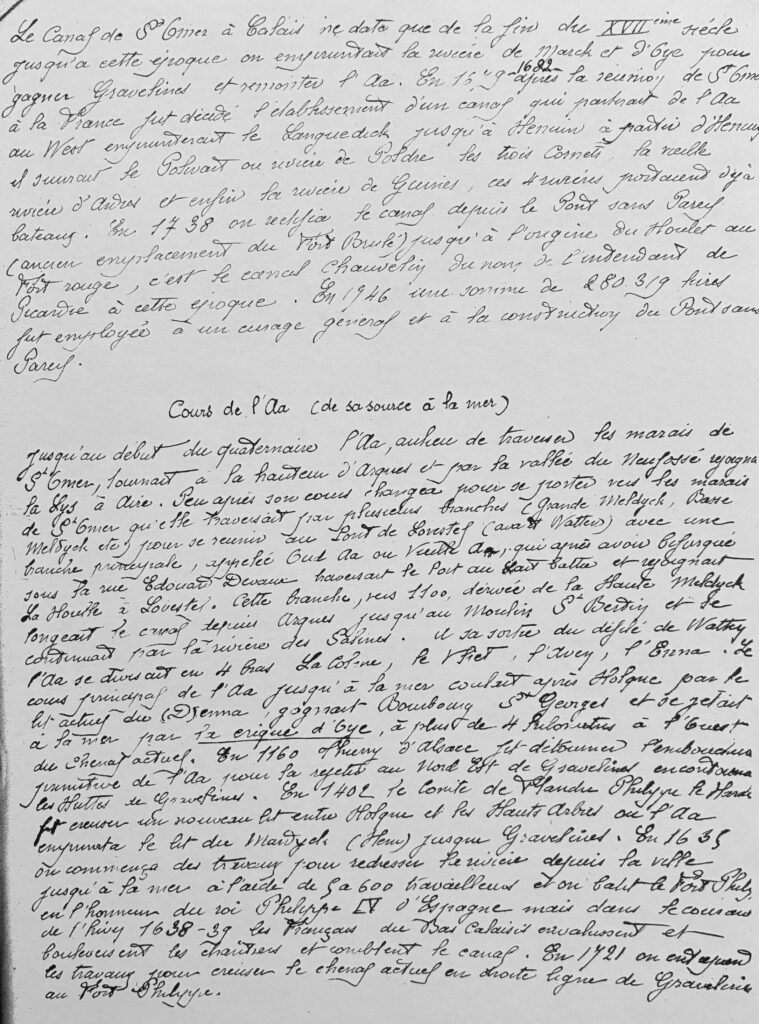 Le Canal de St Omer à Calais ne date que de la fin du XVIIème siécle
jusqu'a cette époque on empruntait la riviére de Marck et d'Oye pour
gagner Gravelines et remonter l'Aa. En 1682 après la réunion de St Ome
à la France fut décidé l'établissement d'un canal qui partirait de l'Aa
au West emprunterait le Languedick jusqu'à Hennin à partir d'Hennin
il suivrait le Polwart ou riviére de Poldre les trois Cornets, la vieille
riviére d'Ardres et enfin la riviére de Guines, ces 4 riviéres portaient déjà
bateaux. En 1738 on rectifia le canal depuis le Pont sans Pareil
(ancien emplacement du Fort Brulé) jusqu'à l'origine du Houlet au
Fort rouge, c'est le canal Chauvelin du nom de l'intendant de
Picardie à cette époque. En 1746 une somme de 280.319 livres
fut employée à un curage general et à la construction du Pont sans
Pareil.
Cours de l'Aa (de sa source à la mer)
Jusqu'au début du quaternaire l'Aa, au lieu de traverser les marais de
St Omer, tournait à la hauteur d'Arques et par la vallée du Neufossé rejoigna
la Lys à Aire. Peu après son cours changea pour se porter vers les marais
de St Omer qu'elle traversait par plusieurs branches (Grande Meldyck, Basse
Meldyck etc) pour se reunir au Pont de Lovestel (avant Watten) avec une
branche principale, appelée Oud Aa ou Vieille Aa, qui après avoir bifurqué
sous la rue Edouard Devaux traversait le Port au battu et rejoignait
La Houlle à Lovestel. Cette branche, vers 1100, dérivée de la Haute Meldyck
longeait le canal depuis Arques jusqu'au Moulin St Bertin et se
continuait par la riviére des Salines. A sa sortie du défilé de Watten
l'Aa se divisait en 4 bras La Colme, le Vliet, l'Avey, l'Enna. Le
cours principal de l'Aa jusqu'à la mer coulait après Holque par le
lit actuel du (D)enna, gagnait Bourbourg St Georges et se jetait
à la mer par la crique d'Oye, à plus de 4 kilomètres à l'Ouest
du chenal actuel. En 1160 Thierry d'Alsace fit détourner l'embouchure
primitive de l'Aa pour la rejeter au Nord Est de Gravelines en
les Huttes de Gravelines. En 1402 le Comte de Flandre Philippe le Hardi
fit creuser un nouveau lit entre Holque et les Hauts Arbres où l'Aa
emprunta le lit du Mardyck (Hem) jusque Gravelines. En 1635
on commença des travaux pour redresser la riviére depuis la ville
jusqu'à la mer à l'aide de 5 a 600 travailleurs et on batit le Fort Philip
en l'honneur du roi Philippe IV d'Espagne mais dans le courant
de l'hiver 1638-39 les Français du Bas Calaisis envahissent et
boulversent les chantiers et comblent le canal. En 1721 on entreprend
les travaux pour creuser le chenal actuel en droite ligne de Gravelines
au Fort Philippe.